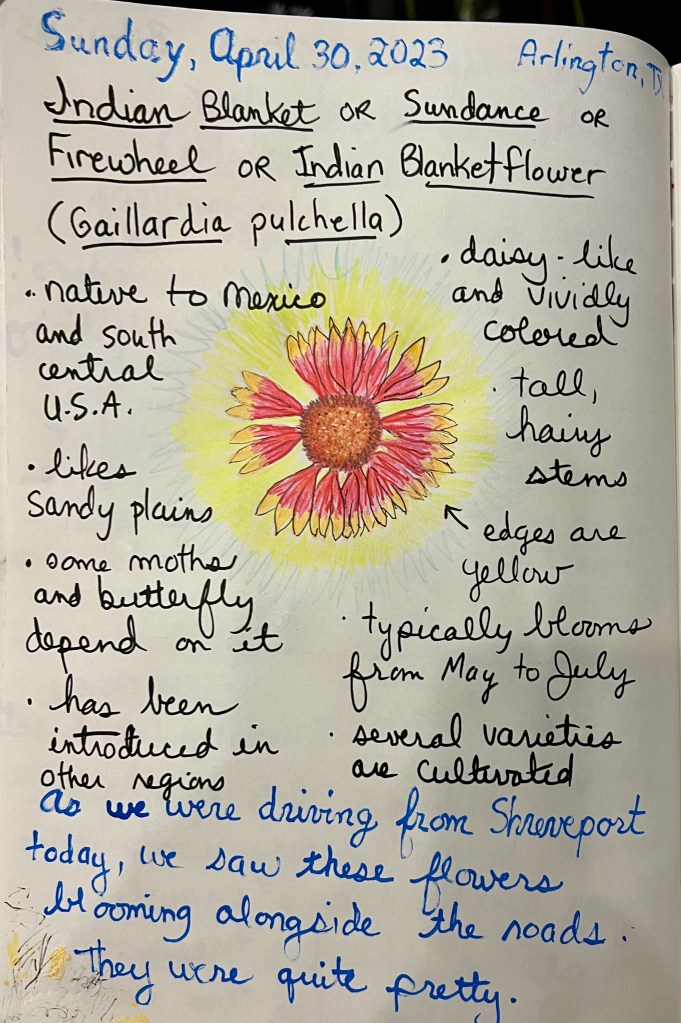 Sunday, April 30, 2023 Arlington, TX
Indian Blanket OR Sundance OR
Firewheel OR Indian Blanketflower
(Gaillardia pulchella)
• native to Mexico
and south
central
U.S.A.
• likes
sandy plains
• some moths
and butterfly
depend on it
• has been
introduced in
other regions
• daisy-like
and vividly
colored
• tall,
hairy
stems
edges are
yellow
• typically blooms
from May to July
• several varieties
are cultivated
As we were driving from Shreveport
today, we saw these flowers
blooming alongside the roads.
They were quite pretty.